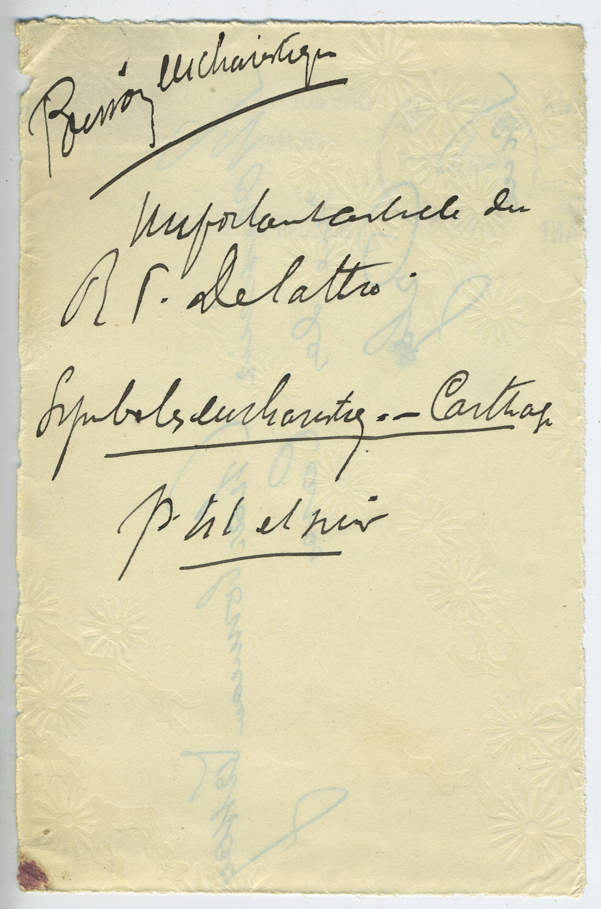 Poisson eucharistique
Important article du
R P. Delattre
Symboles eucharistiq. — Carthage
p. et suiv